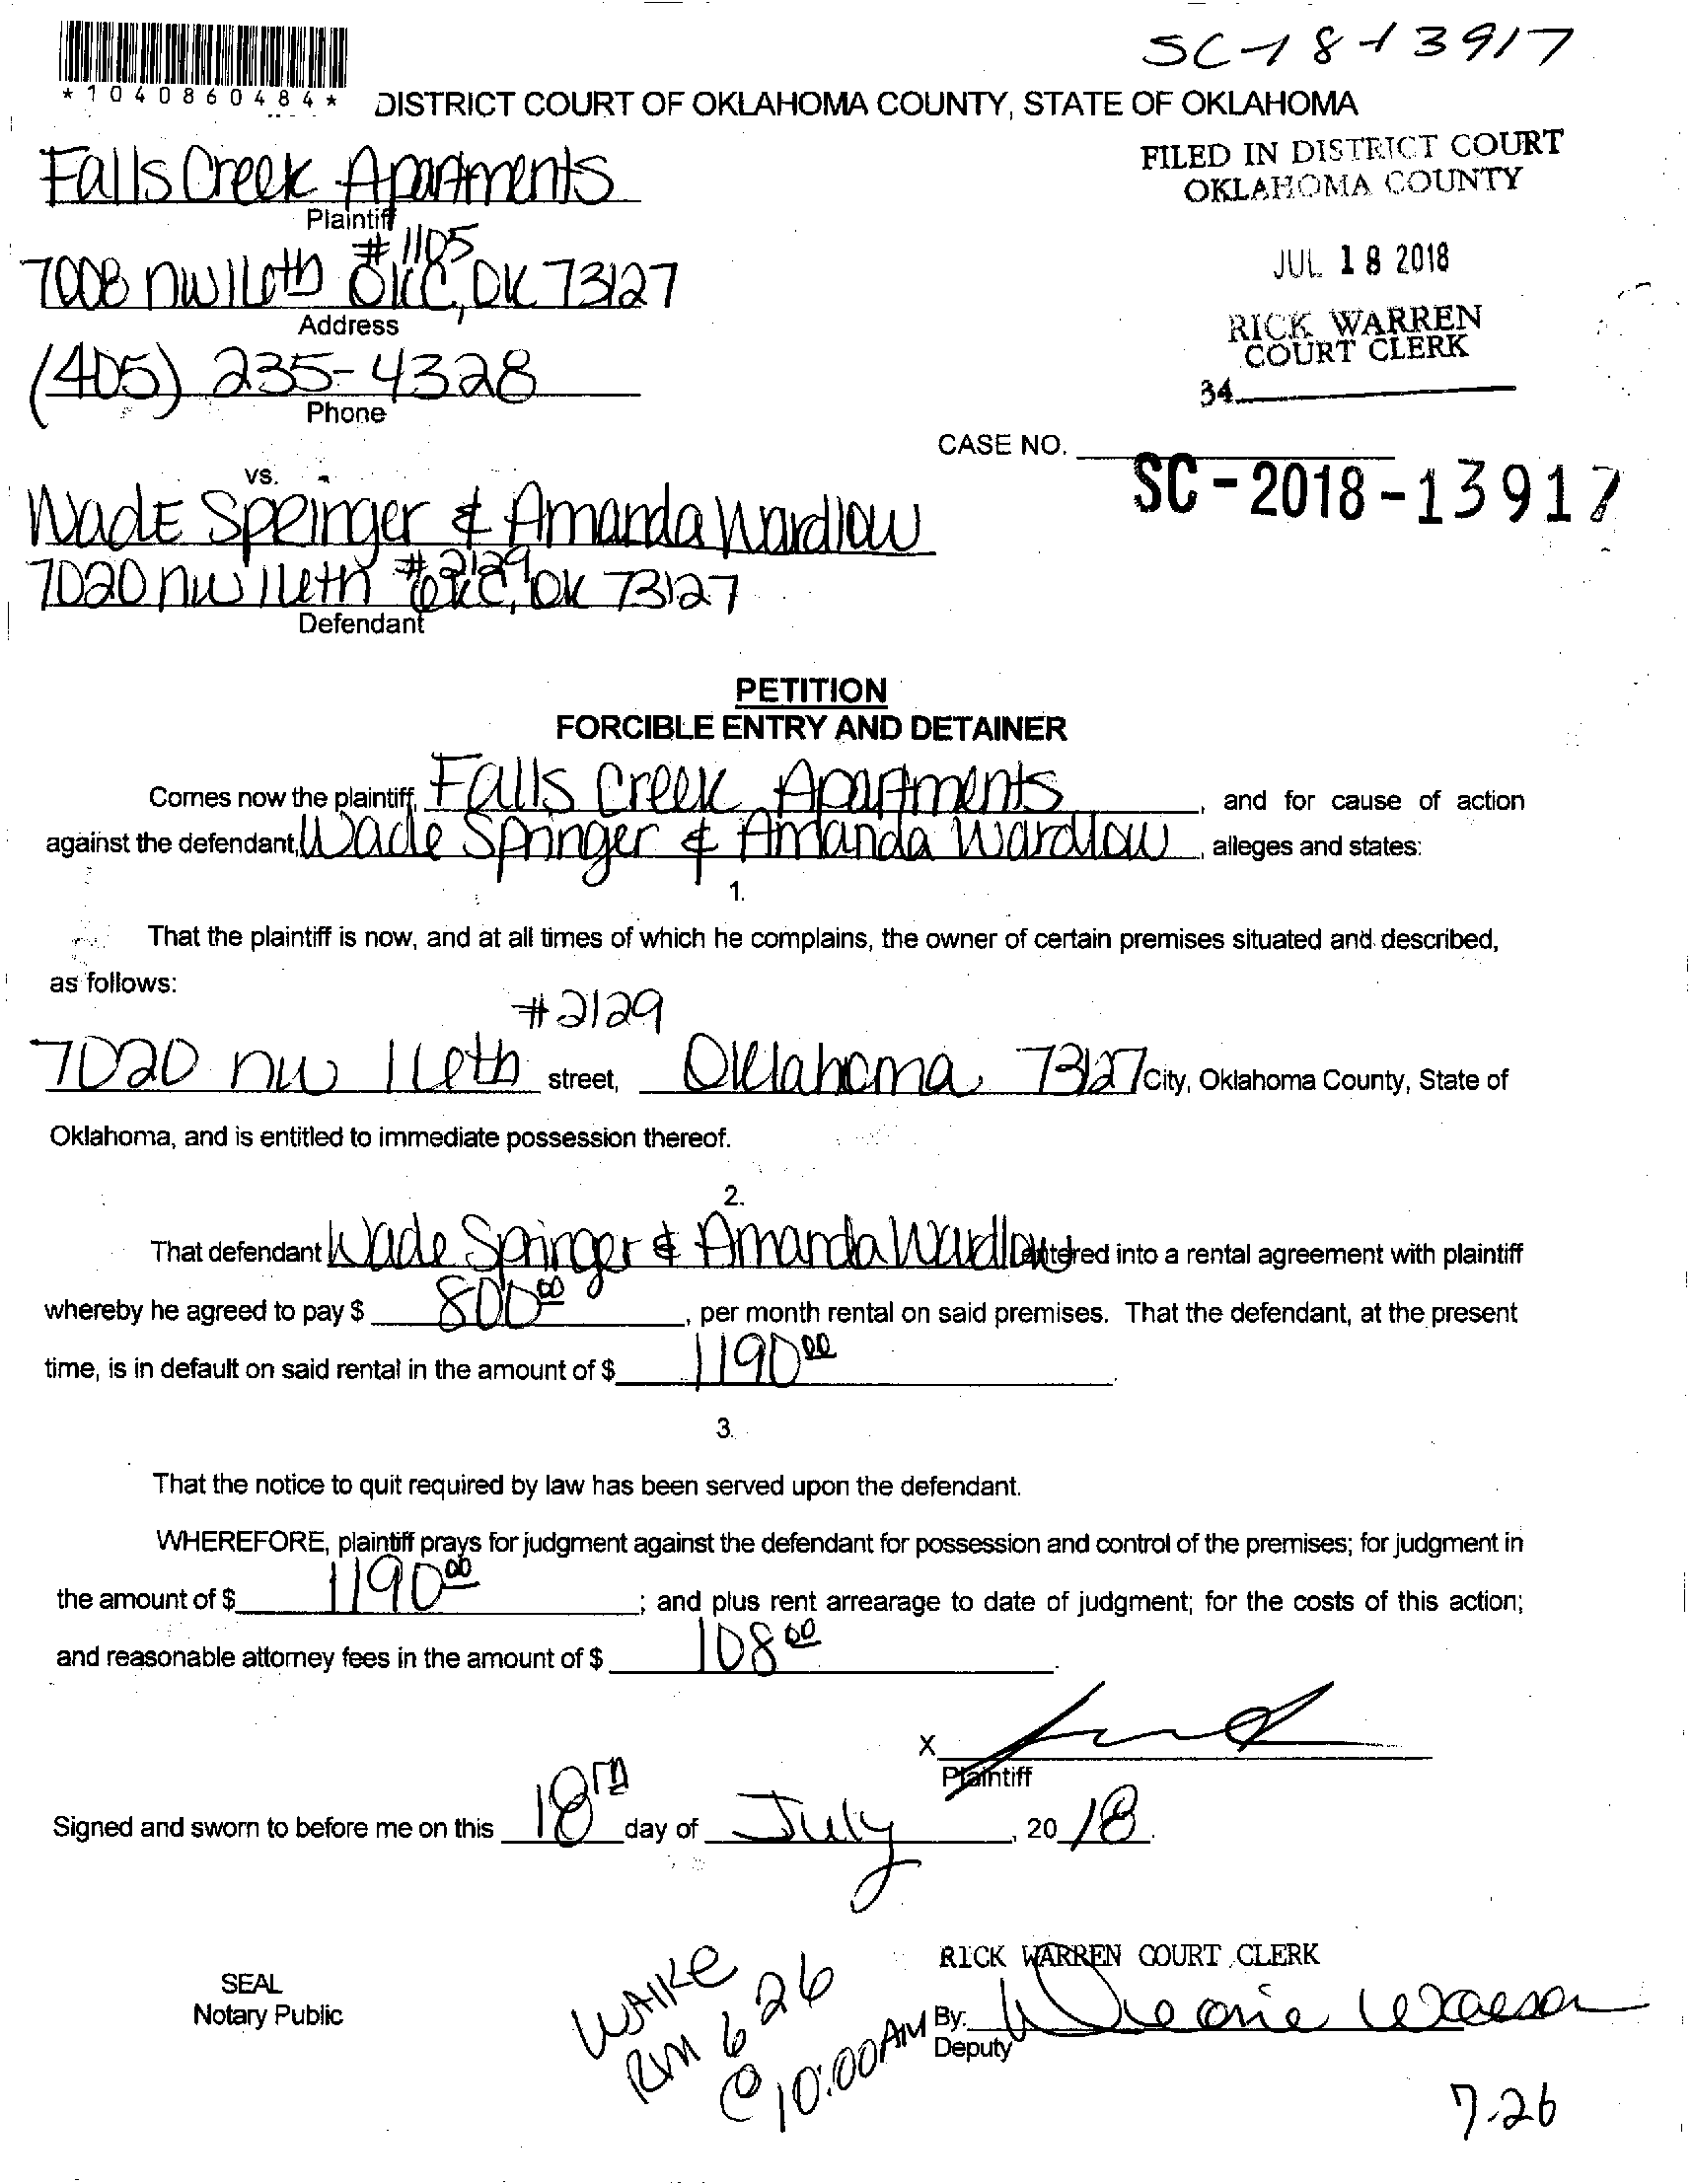 SC-18-13917
*1040860484*
DISTRICT COURT OF OKLAHOMA COUNTY, STATE OF OKLAHOMA
FILED IN DISTRICT COURT
OKLAHOMA COUNTY
JUL 18 2018
RICK WARREN
COURT CLERK
34
Falls Creek Apartments
Plaintiff
#1105
7008 nw 16th OKC, OK 73127
Address
(405) 235-4328
Phone
CASE NO.
SC-2018-13917
vs.
Wade Springer & Amanda Wardlow
7020 nw 16th #2129 OKC, OK 73127
Defendant
PETITION
FORCIBLE ENTRY AND DETAINER
Comes now the plaintiff, Falls Creek Apartments, and for cause of action
against the defendant, Wade Springer & Amanda Wardlow, alleges and states:
1.
That the plaintiff is now, and at all times of which he complains, the owner of certain premises situated and described,
as follows:
#2129
7020 nw 16th street, Oklahoma 73127 City, Oklahoma County, State of
Oklahoma, and is entitled to immediate possession thereof.
2.
That defendant Wade Springer & Amanda Wardlow entered into a rental agreement with plaintiff
whereby he agreed to pay $ 800.00, per month rental on said premises. That the defendant, at the present
time, is in default on said rental in the amount of $ 1190.00.
3.
That the notice to quit required by law has been served upon the defendant.
WHEREFORE, plaintiff prays for judgment against the defendant for possession and control of the premises; for judgment in
the amount of $ 1190.00; and plus rent arrearage to date of judgment; for the costs of this action;
and reasonable attorney fees in the amount of $ 108.00.
X
Plaintiff
Signed and sworn to before me on this 18th day of July, 2018.
SEAL
Notary Public
WAIKE
RM 626
@ 10:00 AM
RICK WARREN COURT CLERK
By:
Deputy
7-26